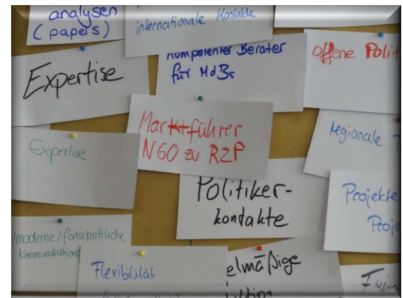 analysen
(papers)
internationale Kontakte
kompetenter Berater
für MdBs
offene Polit
Expertise
Marktführer
NGO zu R2P
regionale
Expertise
Politiker-
kontakte
Projekte
Proje
moderne/fortschrittliche
Kommunikations
Flexibilität
elmäßige